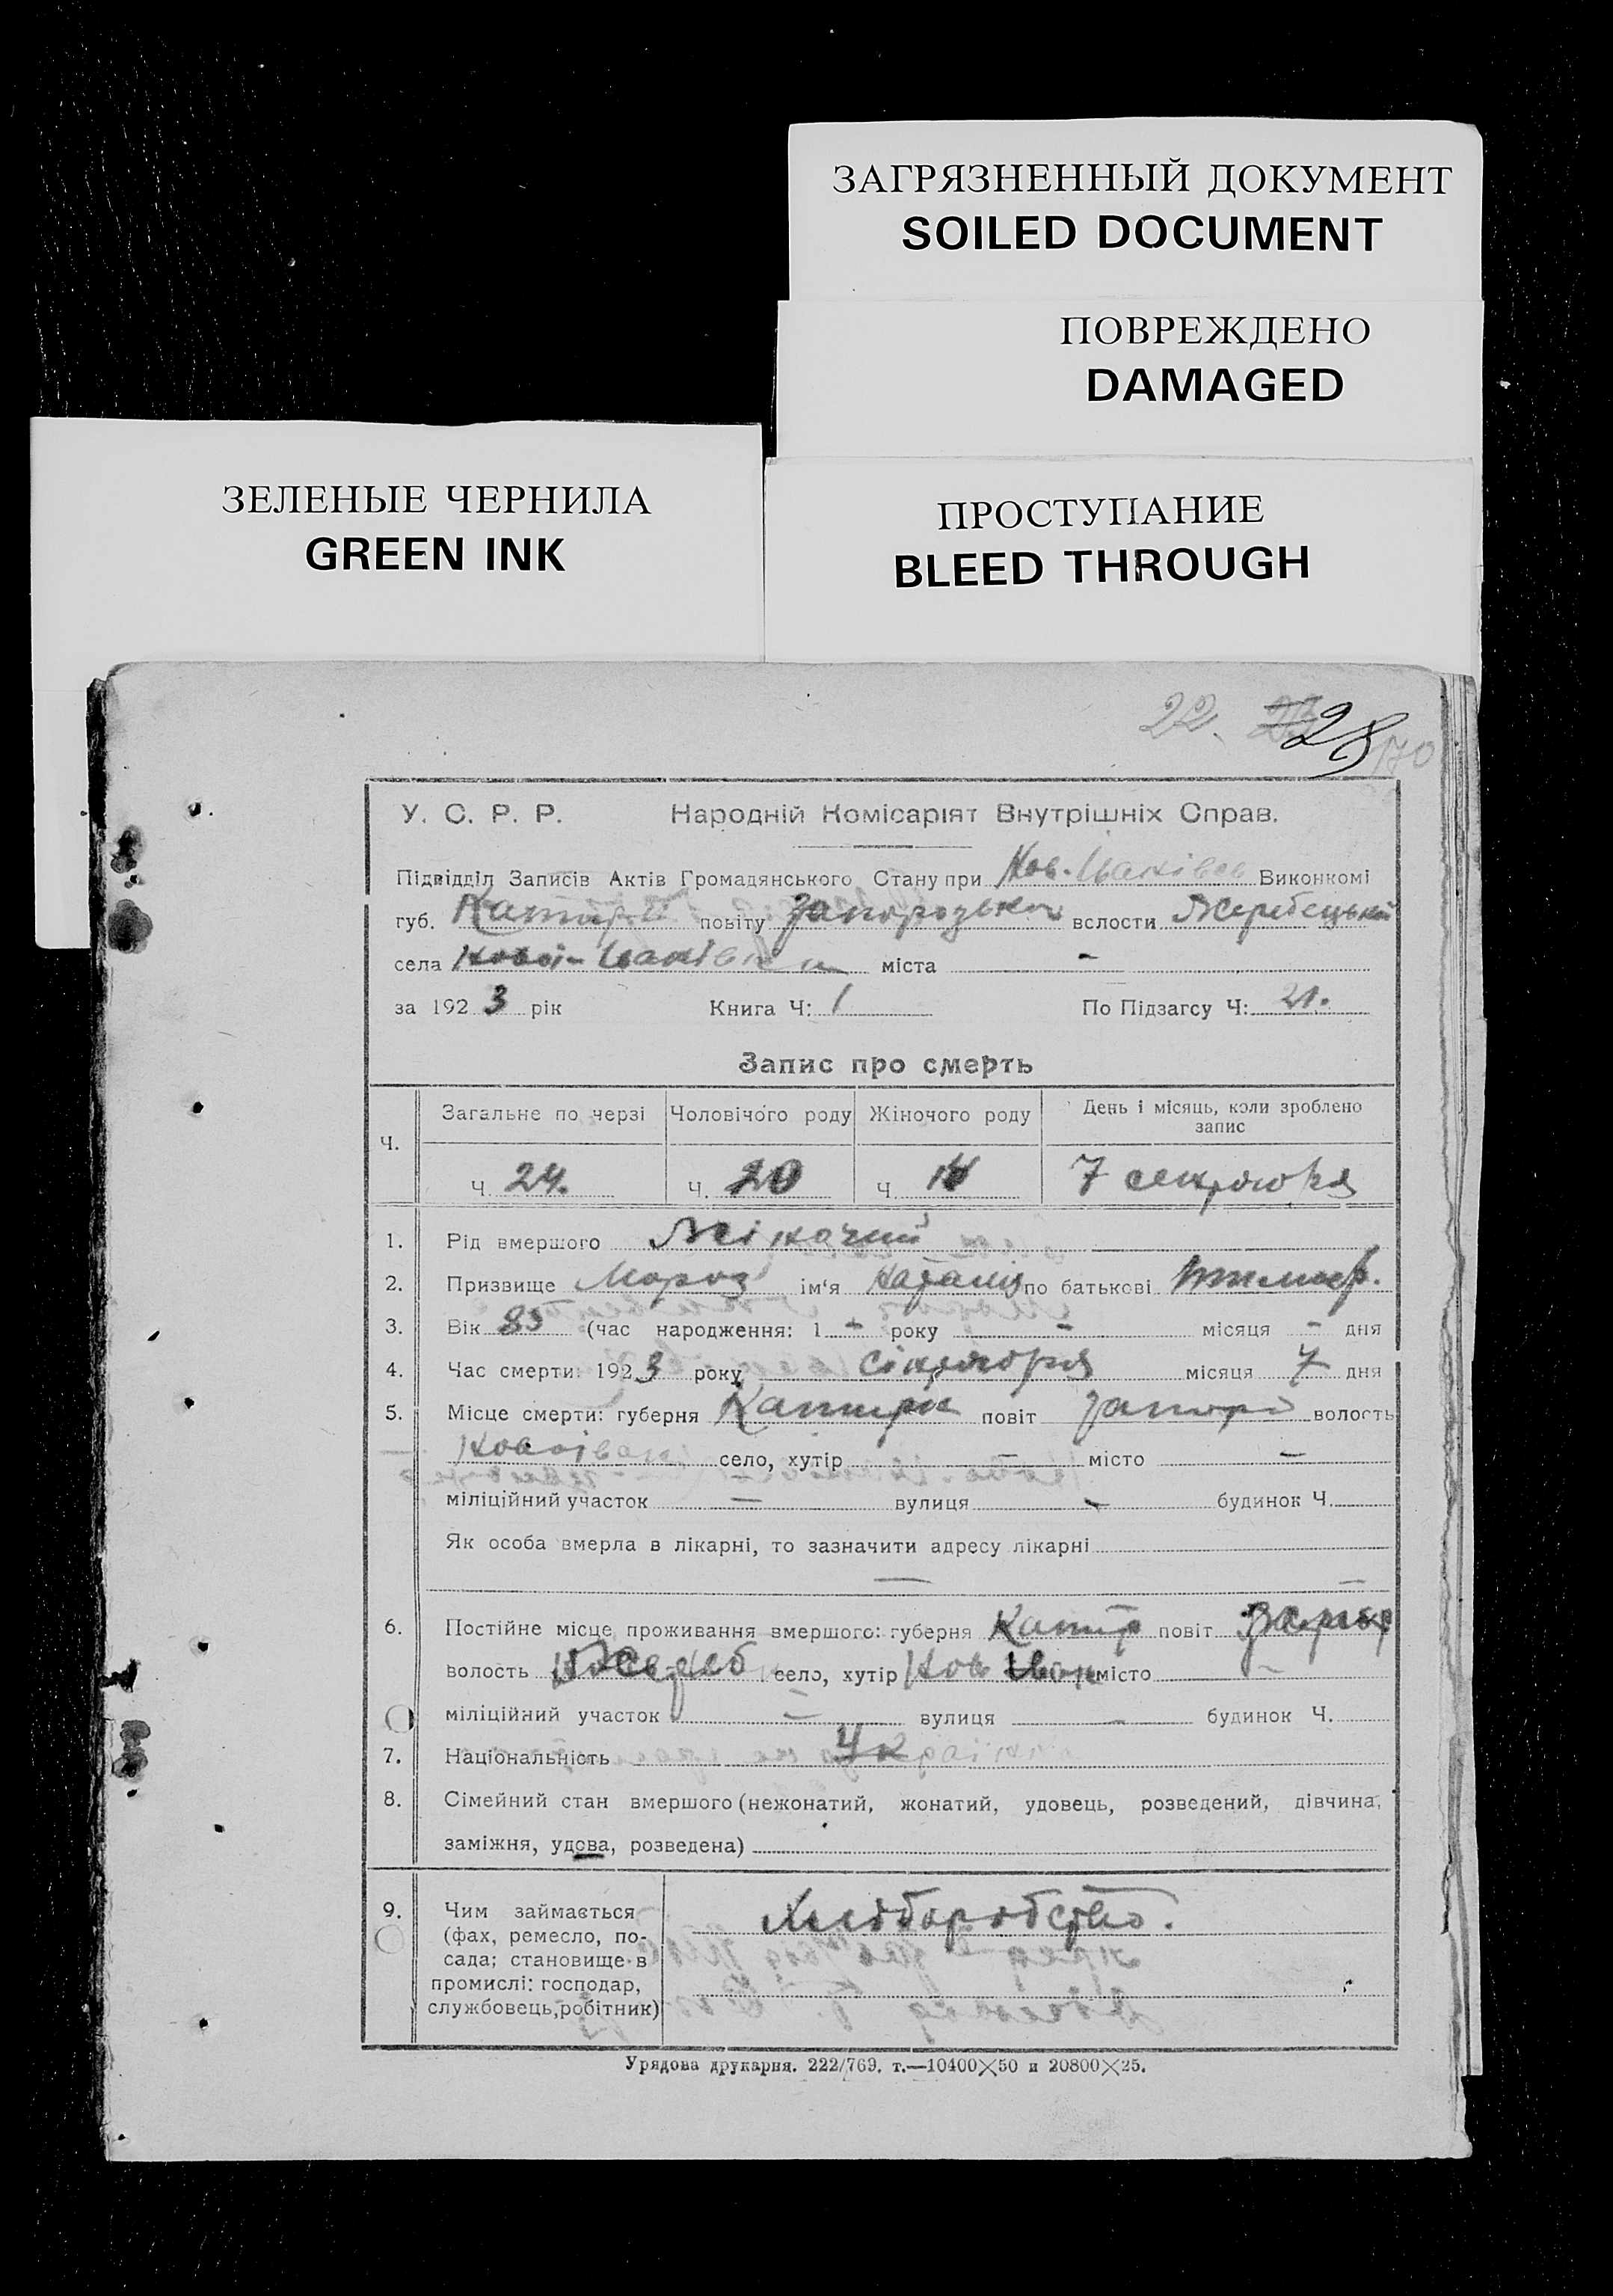 ЗАГРЯЗНЕННЫЙ ДОКУМЕНТ
SOILED DOCUMENT
ПОВРЕЖДЕНО
DAMAGED
ЗЕЛЕНЫЕ ЧЕРНИЛА
GREEN INK
ПРОСТУПАНИЕ
BLEED THROUGH
22. 28
У. С. Р. Р. Народній Комісаріят Внутрішніх Справ.
Підвідділ Записів Актів Громадянського Стану при Нов. Виконкомі
губ. повіту вслости Жеребецької
села міста -
за 1923 рік Книга Ч: 1 По Підзагсу Ч: 21.
Запис про смерть
Ч. Загальне по черзі Чоловічого роду Жіночого роду День і місяць, коли зроблено запис
Ч. 24. Ч. 20 Ч. 7
1. Рід вмершого Жіночий
2. Призвище Мороз ім‘я по батькові
3. Вік 85 (час народження: 1 - року - місяця - дня
4. Час смерти: 1923 року місяця 7 дня
5. Місце смерти: губерня повіт волость
село, хутір — місто —
міліційний участок — вулиця - будинок Ч.
Як особа вмерла в лікарні, то зазначити адресу лікарні
—
6. Постійне місце проживання вмершого: губерня повіт
волость село, хутір місто -
міліційний участок — вулиця - будинок Ч.
7. Національність
8. Сімейний стан вмершого (нежонатий, жонатий, удовець, розведений, дівчина,
заміжня, удова, розведена)
9. Чим займається Хліборобство.
(фах, ремесло, по-
сада; становище в
промислі: господар,
службовець, робітник)
Урядова друкарня. 222/769. т.—10400×50 и 20800×25.